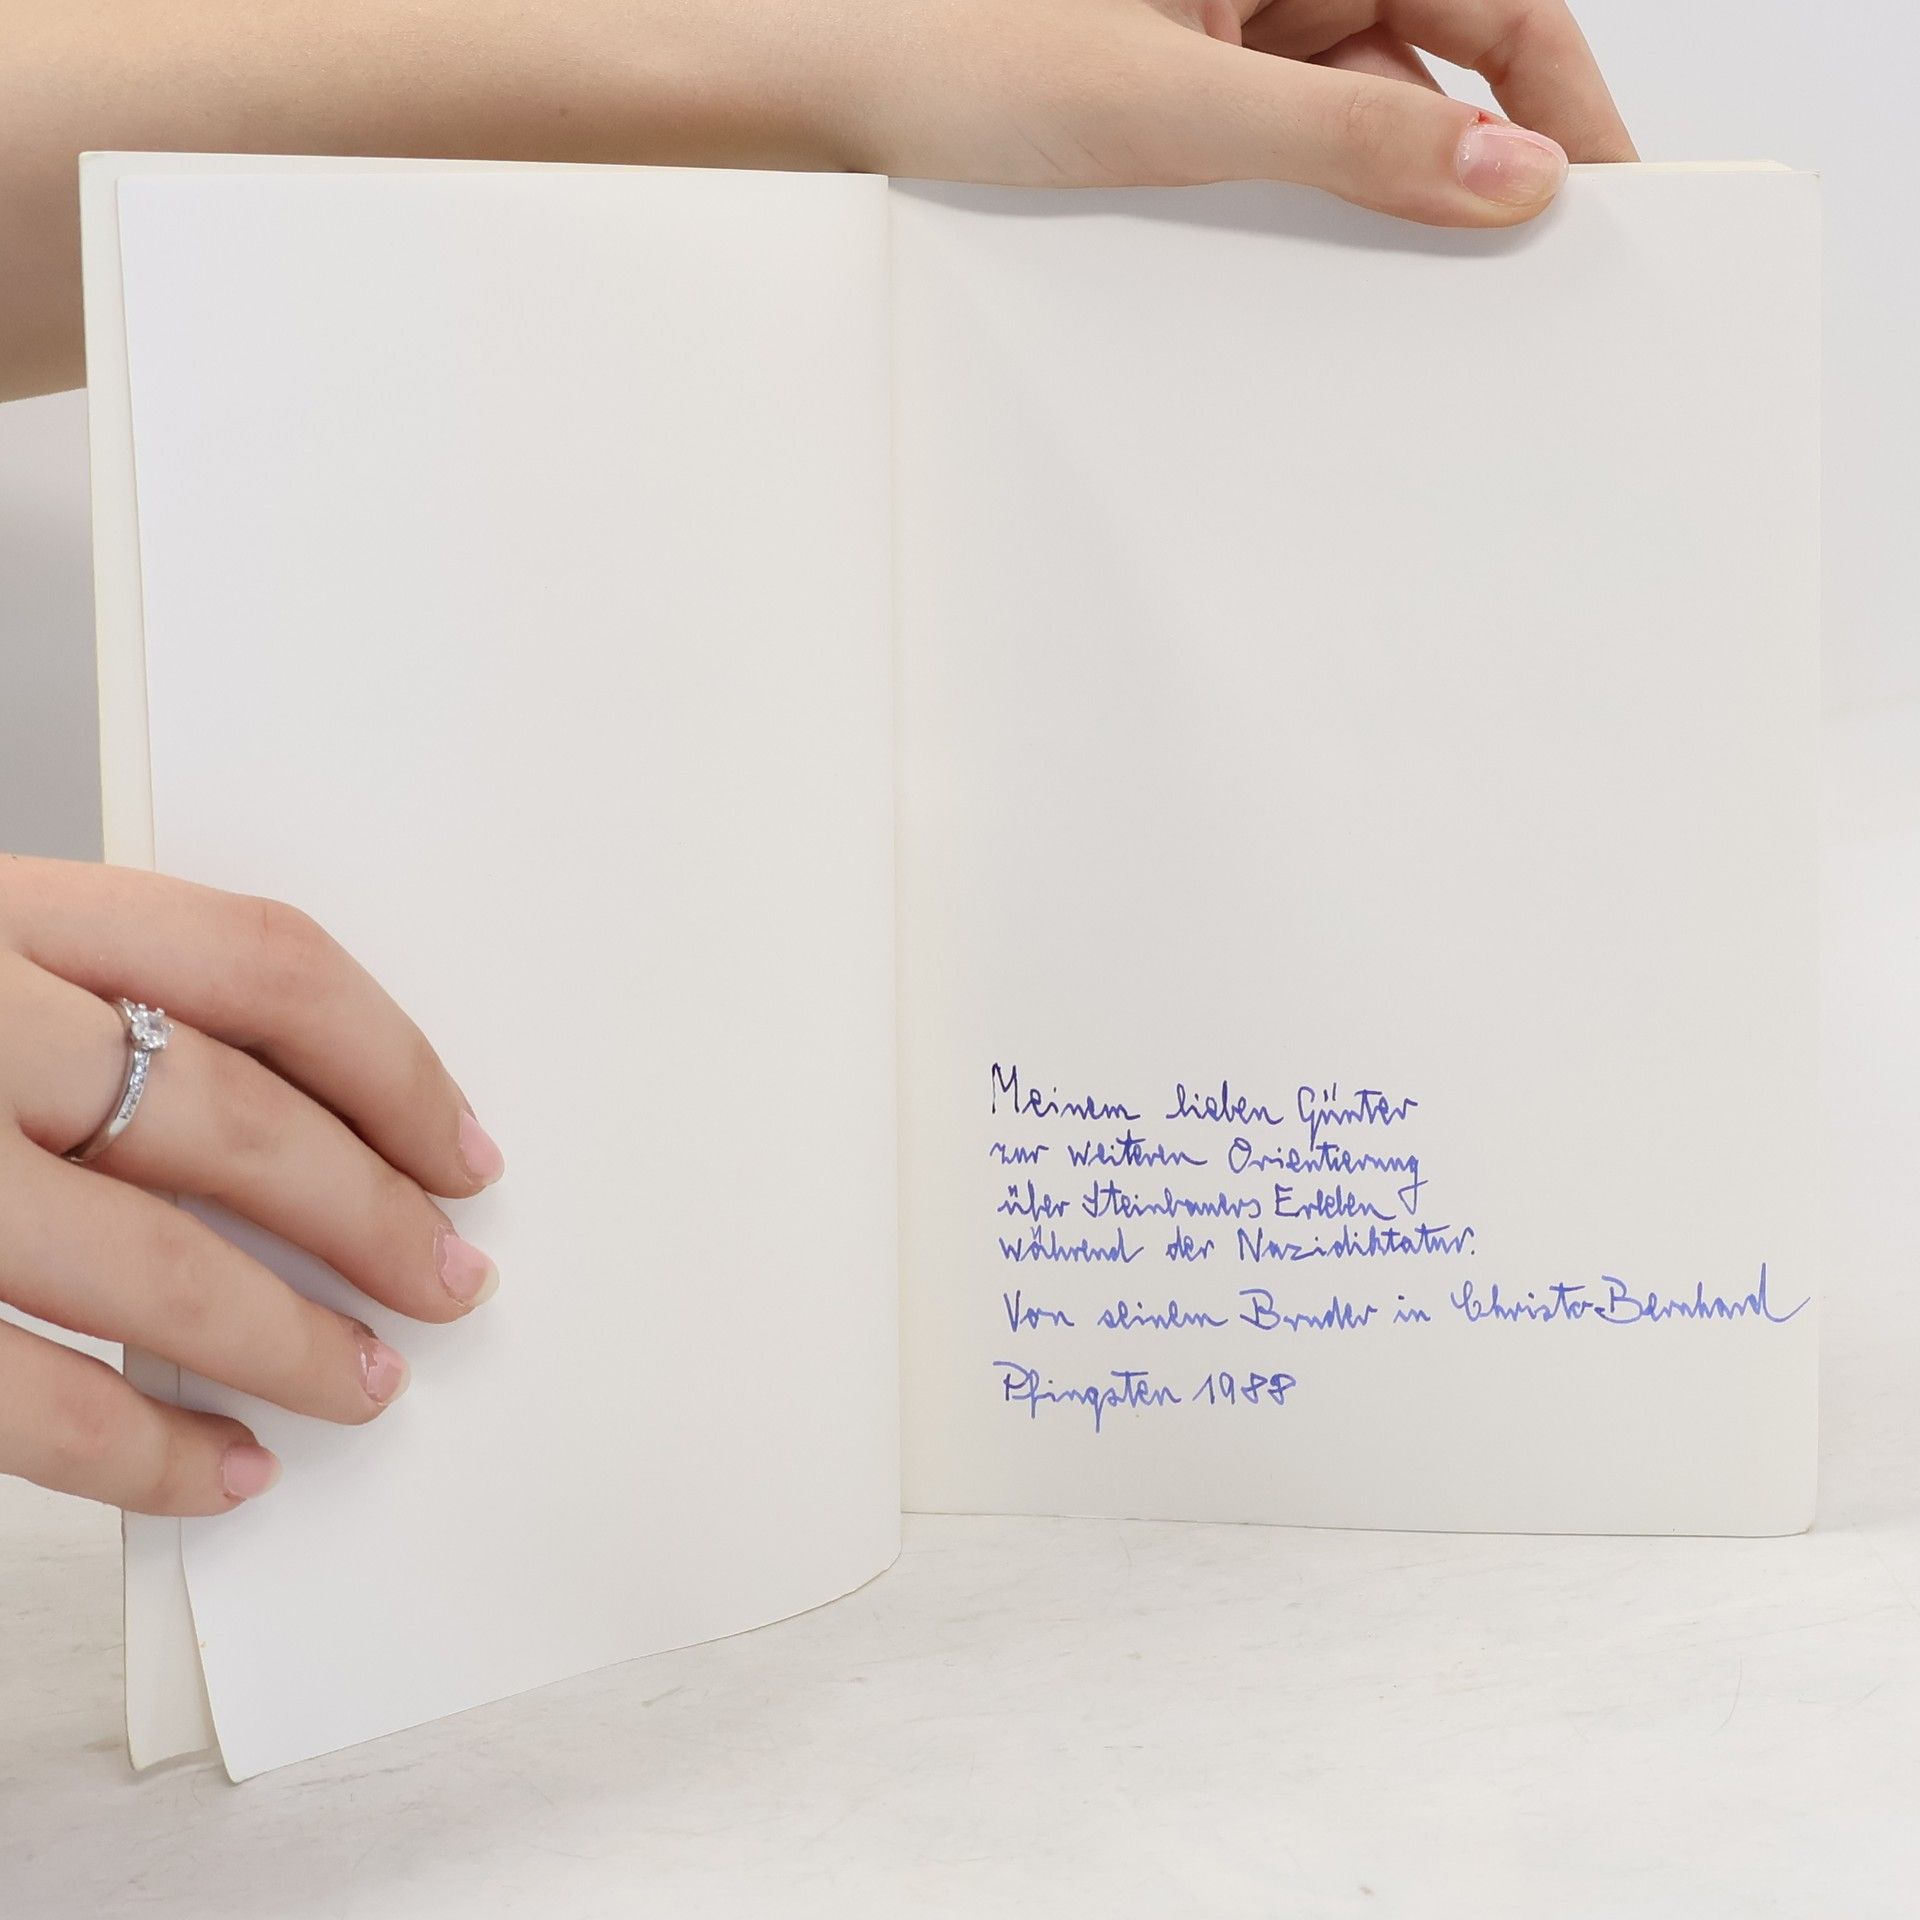 Meinem lieben Günter
zur weiteren Orientierung
über Steinbauers Erleben
während der Nazidiktatur.
Von seinem Bruder in Christo-Bernhard
Pfingsten 1988